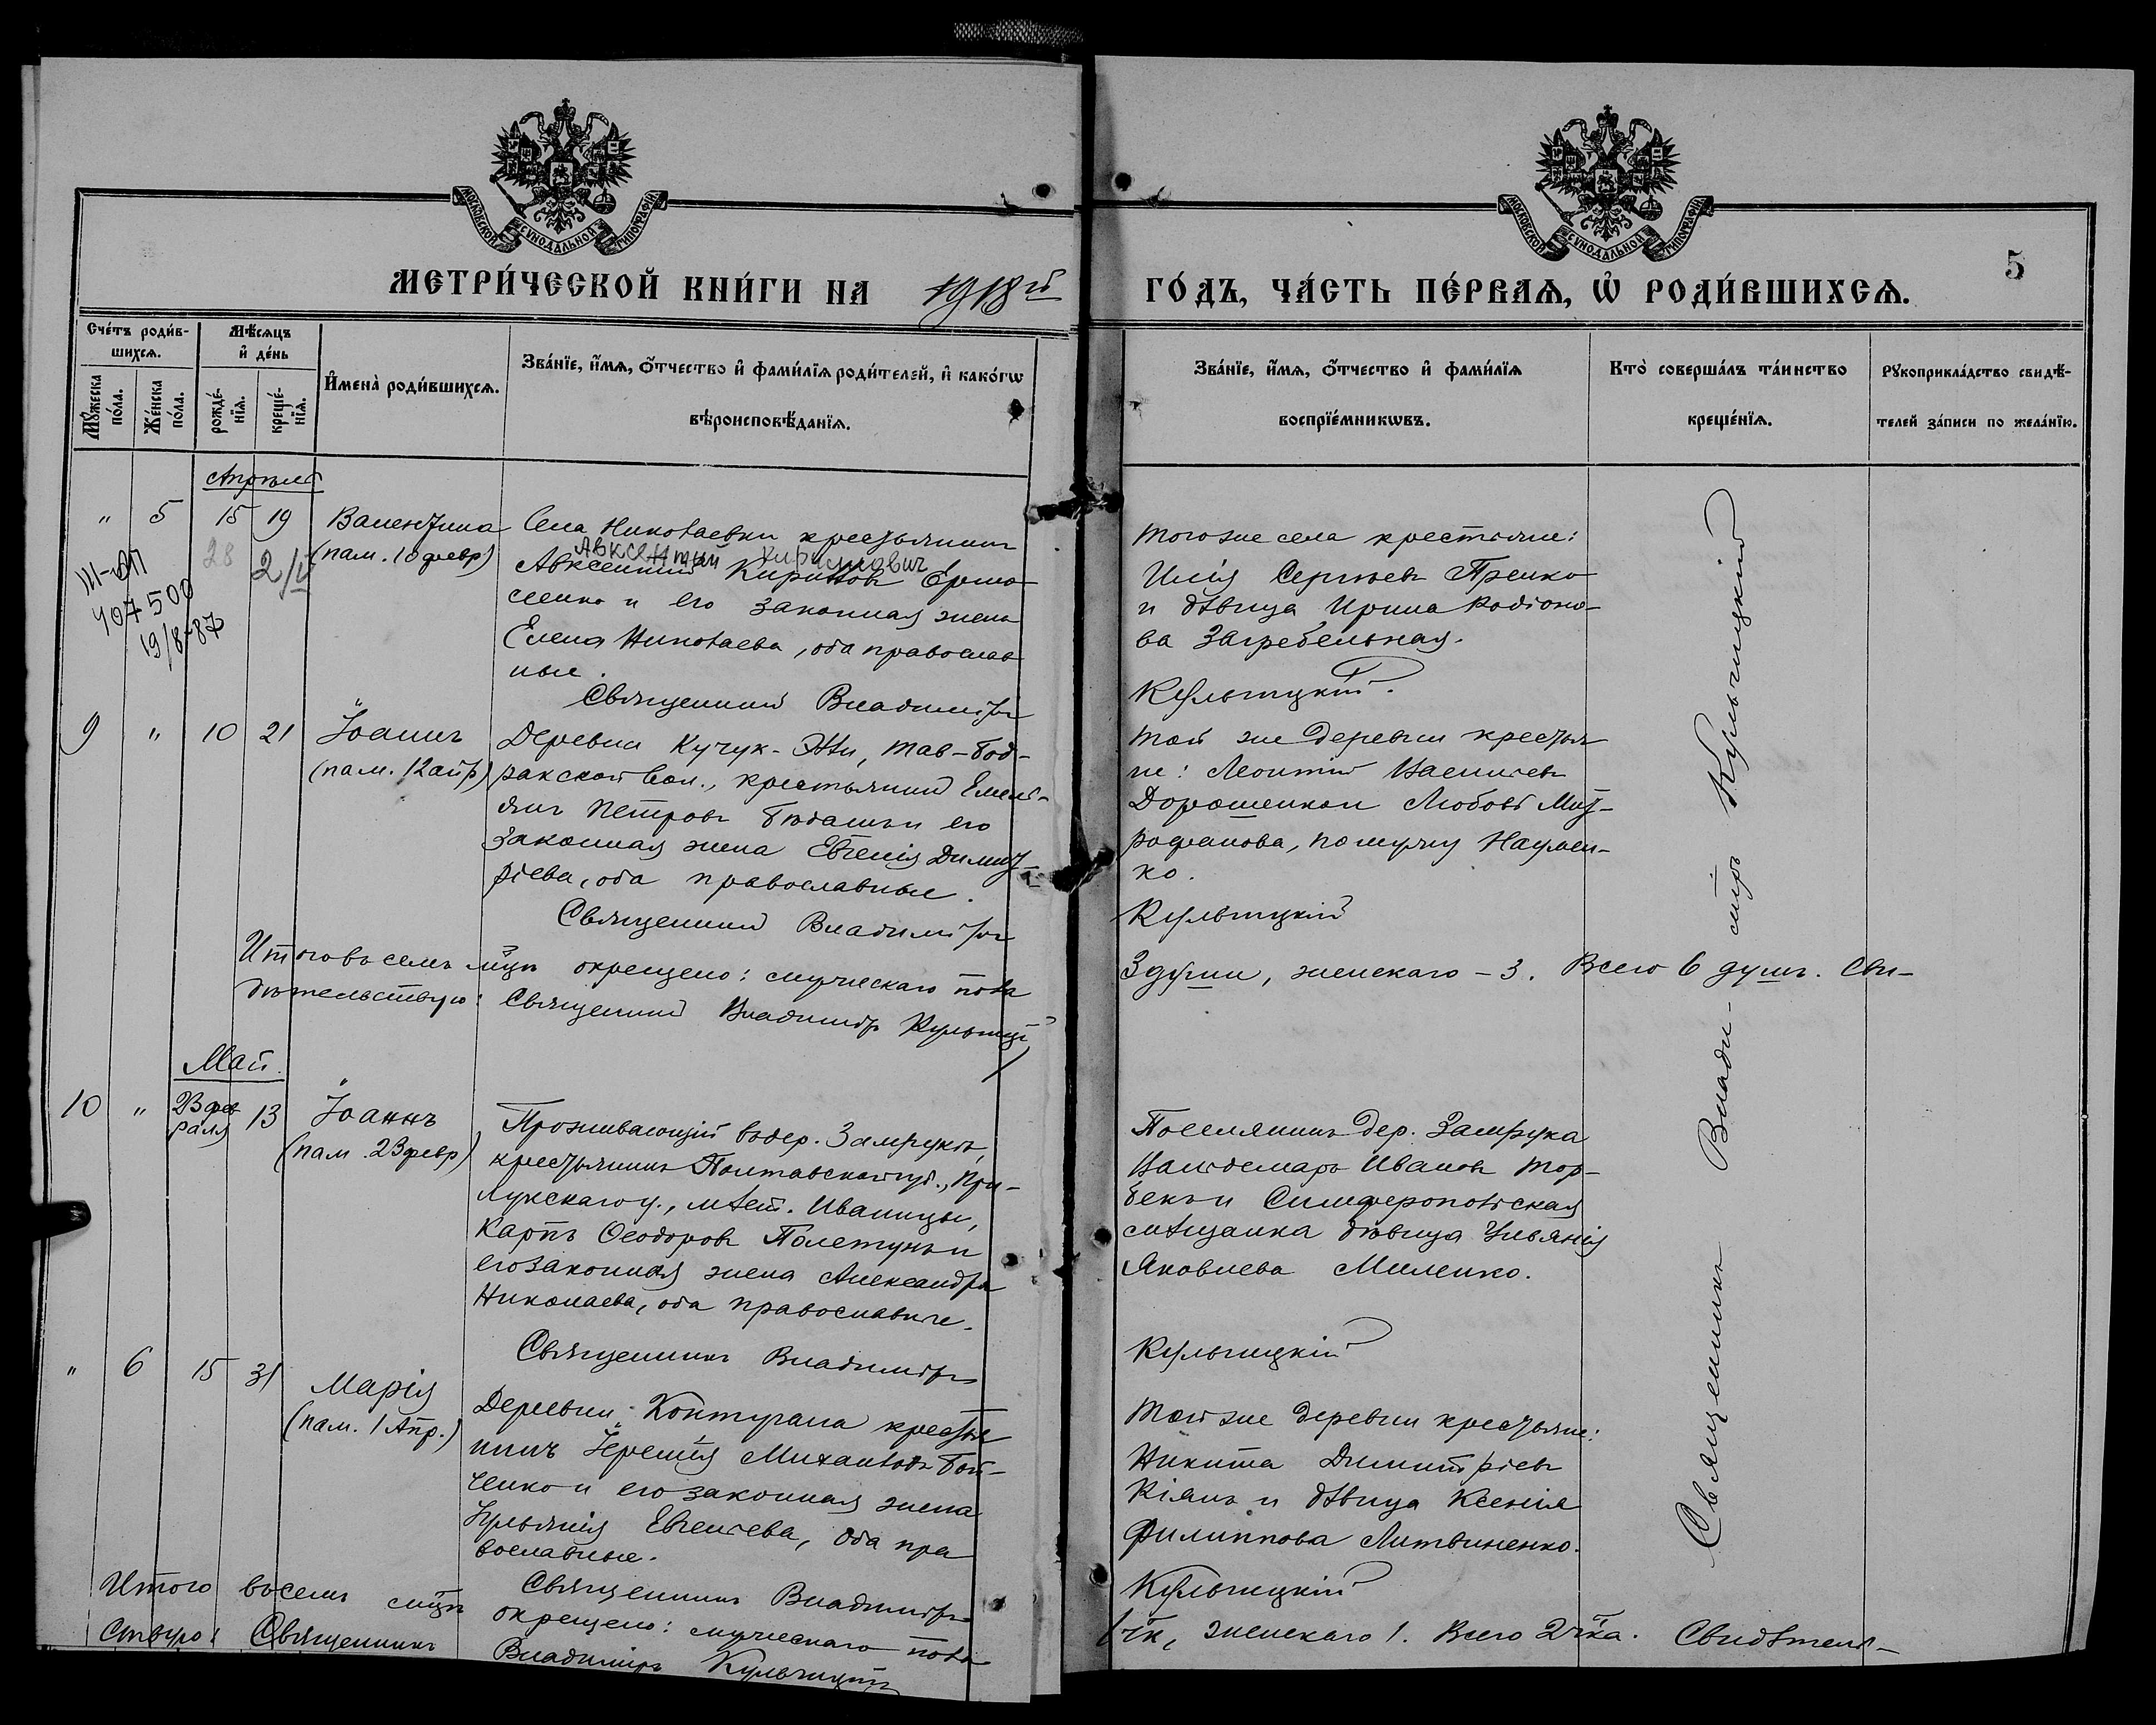 МОСКОВСКОЙ СѴНОДАЛЬНОЙ ТИПОГРАФІИ
МОСКОВСКОЙ СѴНОДАЛЬНОЙ ТИПОГРАФІИ
5
МЕТРИ́ЧЕСКОЙ КНИ́ГИ НА 1918 й
ГО́ДЪ, ЧА́СТЬ ПЕ́РВАѦ, Ѡ РОДИ́ВШИХСѦ.
Сче́тъ роди́в-
шихсѧ.
Мѣ́сѧцъ
и҆ де́нь
Мꙋ́жеска по́ла.
Же́нска по́ла.
рожде́-нїѧ.
креще́-нїѧ.
И҆мена̀ роди́вшихсѧ.
Зва́нїе, и҆́мѧ, ѻ҆́тчество и҆ фами́лїѧ роди́телей, и҆ како́гѡ
вѣроисповѣ́данїѧ.
Зва́нїе, и҆́мѧ, ѻ҆́тчество и҆ фами́лїѧ
воспрїе́мникѡвъ.
Кто̀ соверша́лъ та́инство
креще́нїѧ.
Рꙋкоприкла́дство свидѣ́-
телей за́писи по жела́нїю.
Апрѣль
" 5 15 19 Валентина
(пам. 10 февр)
28 2/V
III-АП
407500
19/8-87
Села Николаевки крестьянинъ
Авксентий Кириллович
Авксентій Кириловъ Ермо-
ленко и его законная жена
Елена Николаева, оба православ
ные.
Священникъ Владиміръ
тогоже села крестьяне:
Илія Сергѣевъ Пренко
и дѣвица Ирина Родіоно-
ва Загребельная.
Кульчицкій.
9 " 10 21 Іоаннъ
(пам. 12 апр)
Деревни Кучук-Эли, Тав-Бод-
ракской вол., крестьянинъ Емель-
янъ Петровъ и его
законная жена Евгенія Димит-
ріева, оба православные.
Священникъ Владиміръ
той же деревни крестья
не: Леонтій
Дорошенко и Любовь Мит-
рофанова, по мужу Наумен-
ко.
Кульчицкій
Итого въ семъ мцѣ окрещено: мужескаго пола
3 души, женскаго - 3. Всего 6 душъ. Сви-
дѣтельствую: Священникъ Владиміръ Кульчицкій
Май.
10 " 23 фев
раля 13 Іоаннъ
(пам. 23 февр)
Проживающій въ дер. Замрукъ,
крестьянинъ Полтавской губ., При-
лукскаго у., мѣст. Иваницы,
Карпъ Ѳеодоровъ Полетунъ и
его законная жена Александра
Николаева, оба православные.
Священникъ Владиміръ
Поселянинъ дер. Замрука
Вальдемаръ Ивановъ Тор-
бекъ и Симферопольская
мѣщанка дѣвица Ульянія
Яковлева Миленко.
Кульчицкій
" 6 15 31 Марія
(пам. 1 Апр.)
Деревни Контугана крестья
нинъ Іеремія Михайловъ Бой-
ченко и его законная жена
Іульянія Евгеніева, оба пра
вославные.
Священникъ Владиміръ
Той же деревни крестьяне:
Никита Димитріевъ
Кіянъ и дѣвица Ксенія
Филиппова Литвиненко.
Кульчицкій
Итого въ семъ мцѣ окрещено: мужескаго пола
1 чк, женскаго 1. Всего 2 чка. Свидѣтель-
ствую: Священникъ Владиміръ Кульчицкій
Священникъ Влади-міръ Кульчицкій